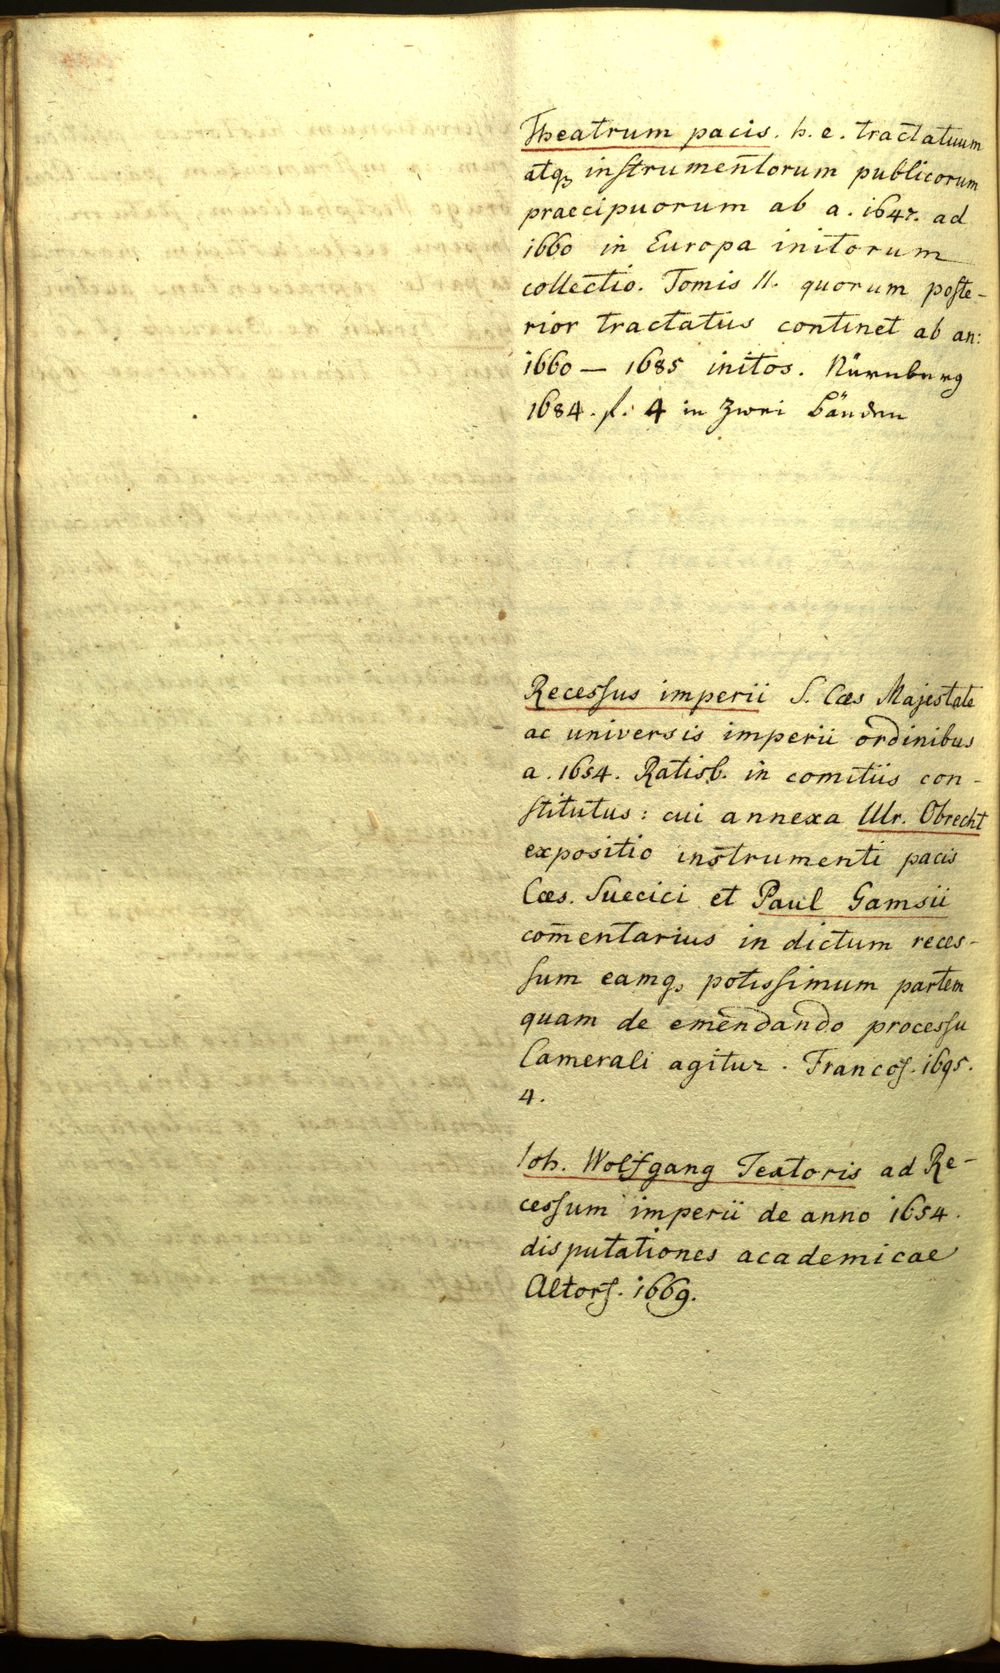 Theatrum pacis. h. e. tractatuum
atq, instrumentorum publicorum
praecipuorum ab a. 1647. ad
1660 in Europa initorum
collectio. Tomis II. quorum poste-
rior tractatus continet ab an:
1660 — 1685 initos. Nürnberg
1684. f. 4 in zwei Bänden
Recessus imperii S. Cæs Majestate
ac universis imperii ordinibus
a. 1654. Ratisb. in comitiis con-
stitutus: cui annexa Ulr. Obrecht
expositio instrumenti pacis
Cæs. Suecici et Paul Gamsii
com̄entarius in dictum reces-
sum eamq, potissimum partem
quam de emendando processu
Camerali agitur. Francof. 1695.
4.
Ioh. Wolfgang Textoris ad Re-
cessum imperii de anno 1654.
disputationes academicae
Altorf. 1669.